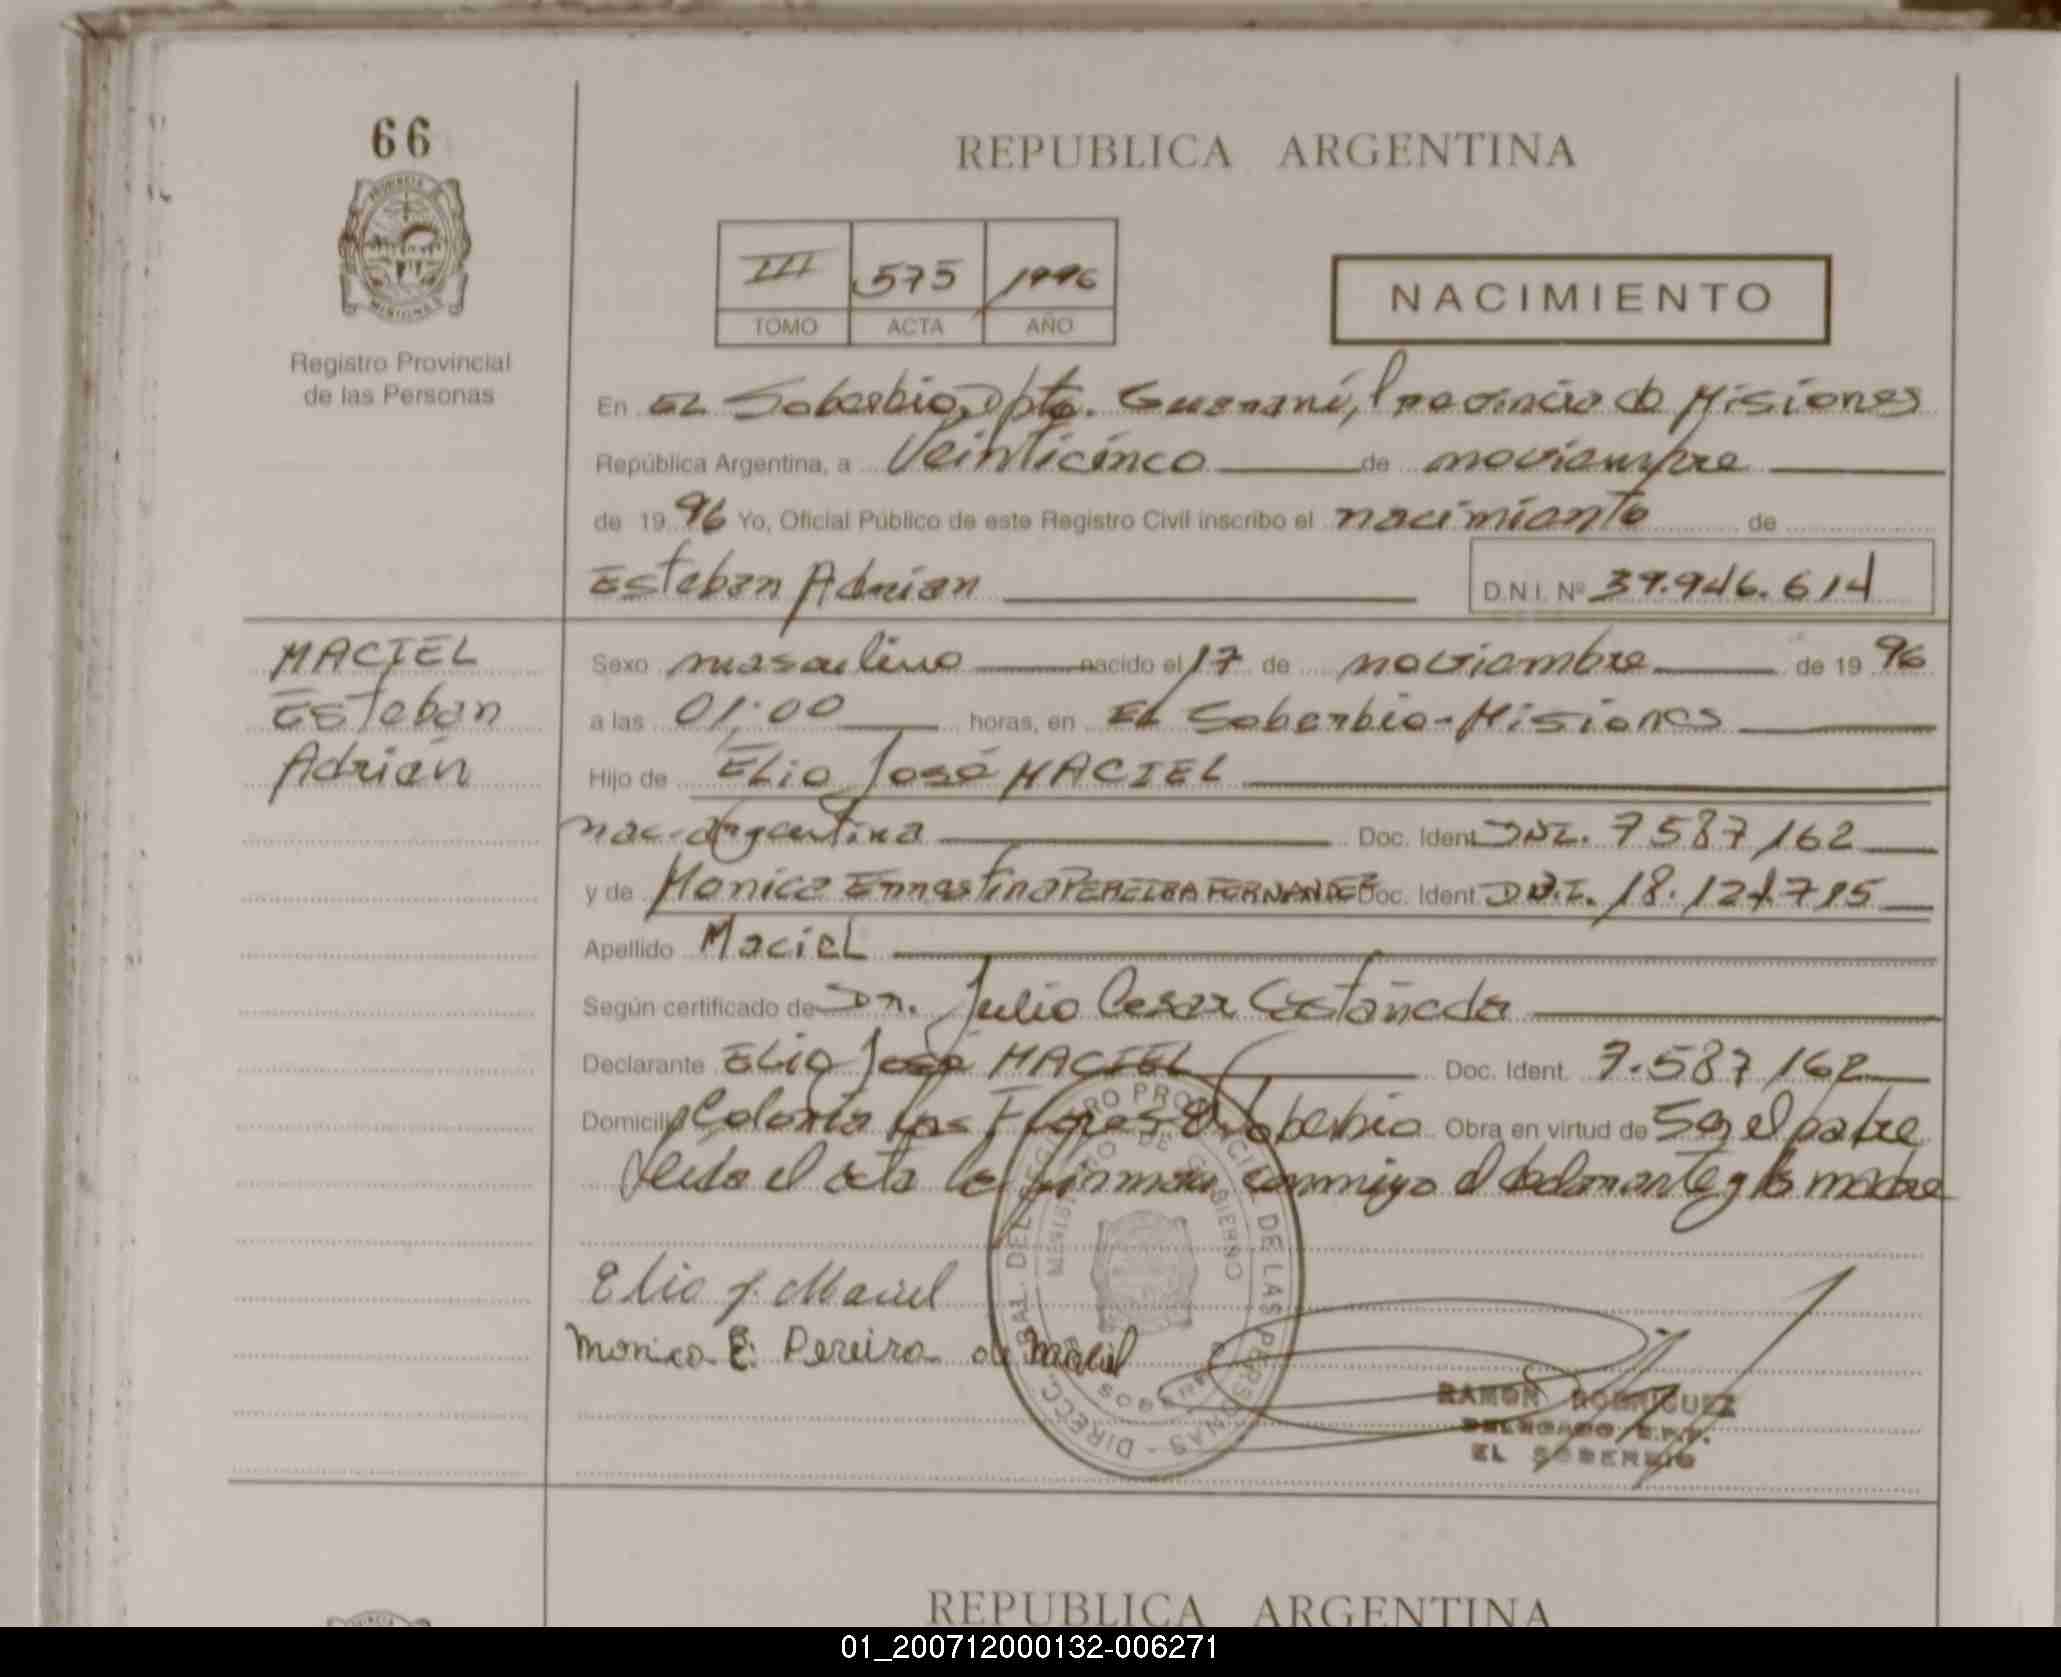 66
REPUBLICA ARGENTINA
III 575 1996
TOMO ACTA AÑO
NACIMIENTO
Registro Provincial
de las Personas
En EL Soberbio, Dpto. Guaraní, Provincia de Misiones
República Argentina, a Veinticinco de noviembre
de 1996 Yo, Oficial Público de este Registro Civil inscribo el nacimiento de
Esteban Adrian D.N.I. Nº 39.946.614
MACIEL
Esteban
Adrián
Sexo masculino nacido el 17 de noviembre de 1996
a las 01:00 horas, en EL Soberbio-Misiones
Hijo de ELio José MACIEL
nac. argentina Doc. Ident. DNI. 7587162
y de Monica Ernestina PEREIRA FERNANDEZ Doc. Ident. D.N.I. 18.121.715
Apellido MacieL
Según certificado de Dr. Julio Cesar Castañeda
Declarante ELio José MACIEL Doc. Ident. 7.587162
Domicilio Colonia Las Flores El Soberbio Obra en virtud de Ser el padre
Leida el acta la firman conmigo el declarante y la madre
Elio J. Maciel
Monica E. Pereira de Maciel
DIRECC. GRAL. DEL REGISTRO PROVINCIAL DE LAS PERSONAS
MINISTERIO DE GOBIERNO
RAMON RODRIGUEZ
DELEGADO R.P.P.
EL SOBERBIO
REPUBLICA ARGENTINA
01_200712000132-006271